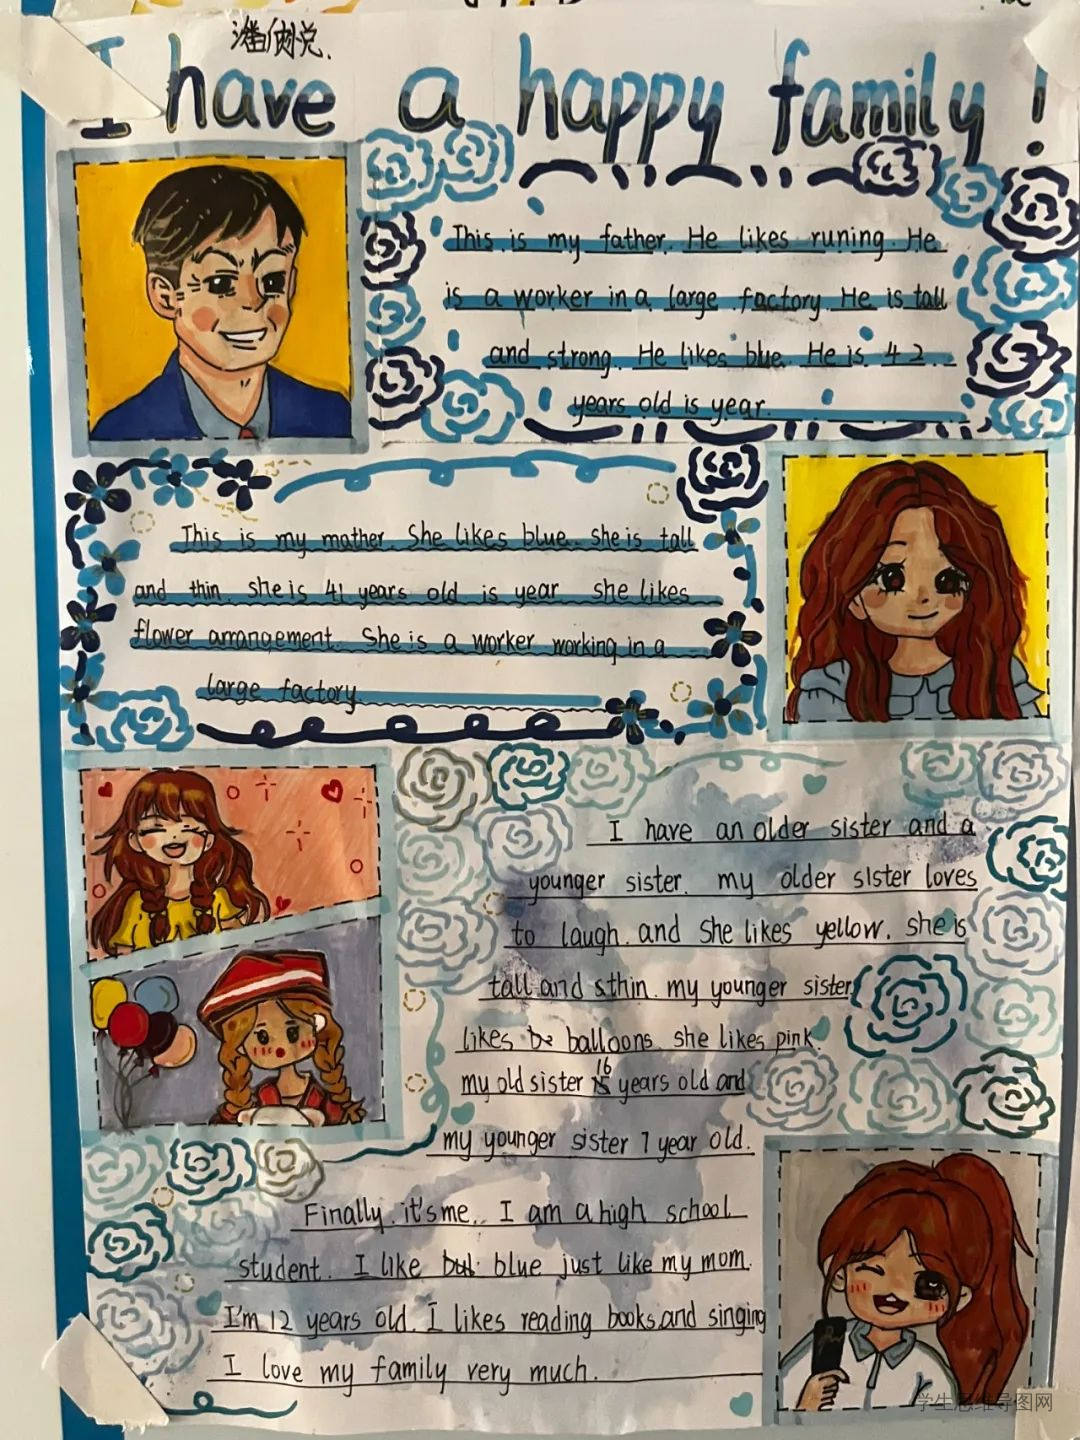 I have a happy family!
This is my father. He likes runing. He
is a worker in a large factory. He is tall
and strong. He likes blue. He is 42
years old is year.
This is my mather. She likes blue. she is tall
and thin. she is 41 years old is year she likes
flower arrangement. She is a worker working in a
large factory
I have an older sister and a
younger sister. my older sister loves
to laugh and she likes yellow. she is
tall and sthin. my younger sister
likes balloons. she likes pink.
my old sister 16 years old and
my younger sister 7 year old.
Finally. it's me.. I am a high school
student. I like blue just like my mom.
I'm 12 years old. I likes reading books and singing
I love my family very much.
学生思维导图网